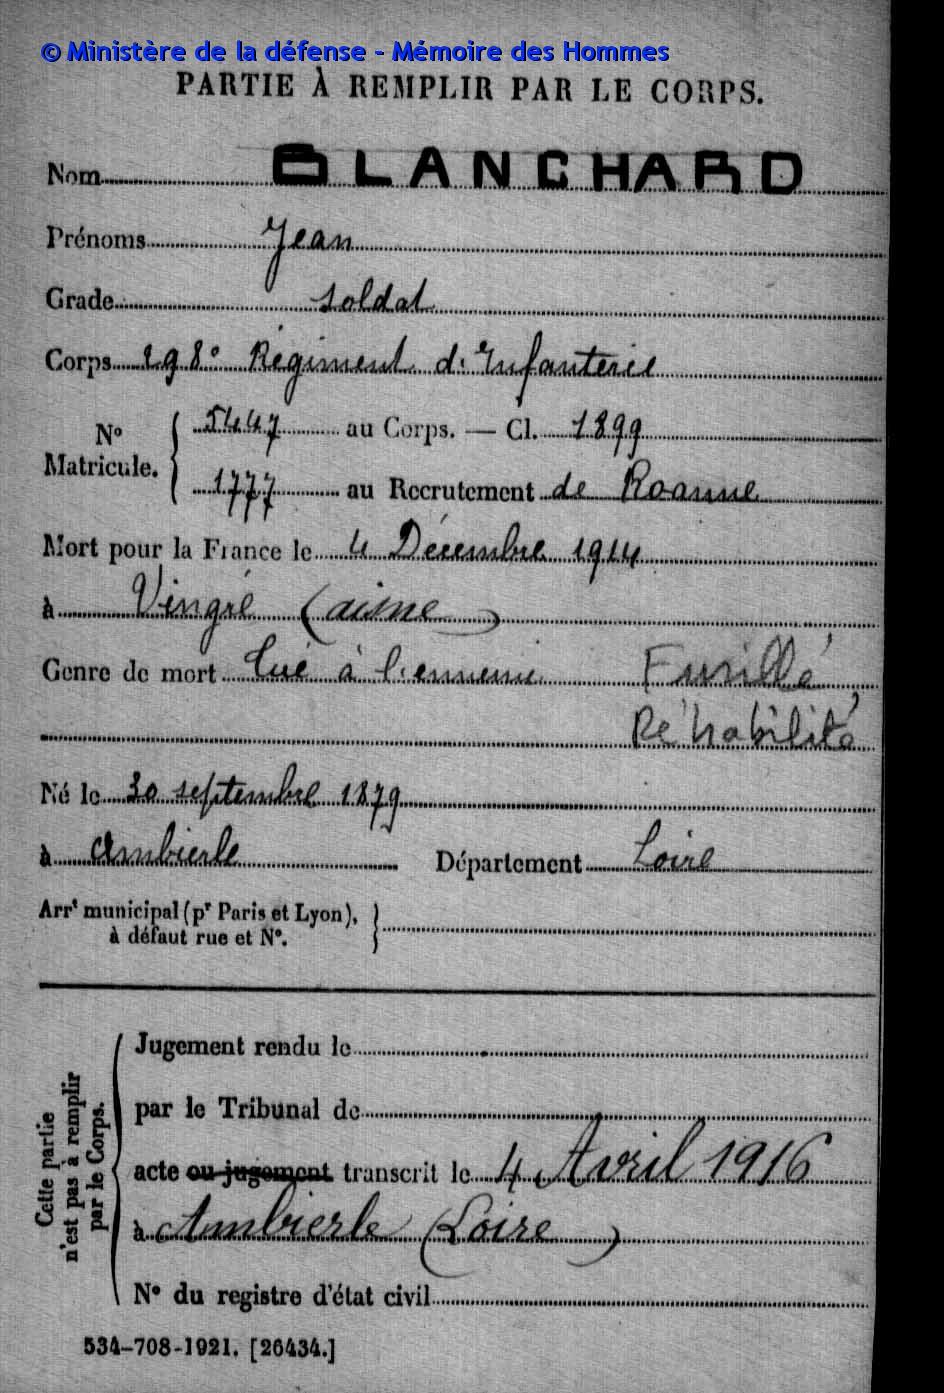 © Ministère de la défense - Mémoire des Hommes
PARTIE À REMPLIR PAR LE CORPS.
Nom BLANCHARD
Prénoms Jean
Grade soldat
Corps 298e Régiment d'Infanterie
No Matricule. 5447 au Corps. — Cl. 1899
1777 au Recrutement de Roanne
Mort pour la France le 4 Décembre 1914
à Vingré (aisne)
Genre de mort tué à l'ennemi Fusillé
Réhabilité
Né le 30 septembre 1879
à Ambierle Département Loire
Arrt municipal (pr Paris et Lyon),
à défaut rue et No.
Cette partie
n'est pas à remplir
par le Corps.
Jugement rendu le
par le Tribunal de
acte ou jugement transcrit le 4 Avril 1916
à Ambierle (Loire)
No du registre d'état civil
534-708-1921. [26434.]